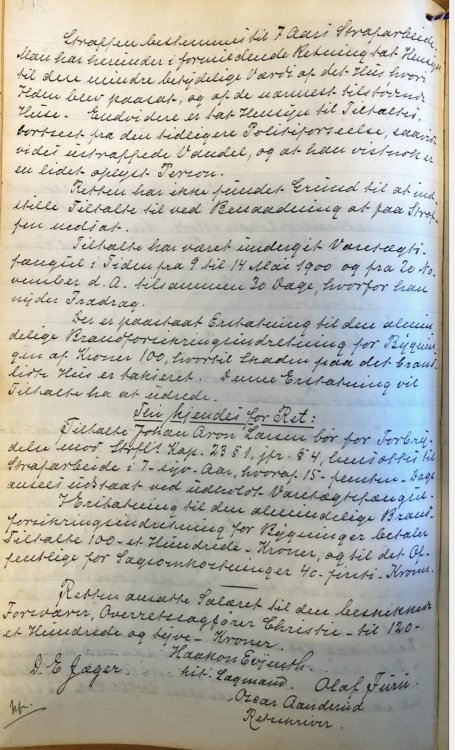 Straffen bestemmes til 7 Aars Strafarbeide.
Man har herunder i formildende Retning tat Hensyn
til den mindre betydelige Værdi af det Hus hvori
Ilden blev paasat, og af de nærmest tilstødende
Huse. Endvidere er tat Hensyn til Tiltaltes,
bortseet fra den tidligere Politiforseelse, saavidt
vides ustraffede Vandel, og at han vistnok er
en lidet oplyst Person.
Retten har ikke fundet Grund til at ind-
stille Tiltalte til ved Benaadning at faa Straf-
fen nedsat.
Tiltalte har været undergit Varetægts-
fængsel i Tiden fra 9 til 14 Mai 1900 og fra 20 No-
vember d. A. tilsammen 20 Dage, hvorfor han
nyder Fradrag.
Der er paastaat Erstatning til den almin-
delige Brandforsikringsindretning for Bygnin-
ger af Kroner 100, hvortil Skaden paa det brand-
lidte Hus er taxeret. Denne Erstatning vil
Tiltalte ha at udrede.
Thi kjendes for Ret:
Tiltalte Johan Aron Larsen bør for Forbry-
delse mod Strfl. Kap. 23 § 1, jfr. § 4, hensættes til
Strafarbeide i 7 - syv - Aar, hvoraf 15 - femten - Dage
ansees udstaat ved udholdt Varetægtsfængsel.
I Erstatning til den almindelige Brand-
forsikringsindretning for Bygninger betaler
Tiltalte 100 - et Hundrede - Kroner, og til det Of-
fentlige for Sagsomkostninger 40 - firti - Kroner.
Retten ansatte Salæret til den beskikkede
Forsvarer, Overretssagfører Christie - til 120 -
et Hundrede og tyve - Kroner.
Haakon
D. E. Jæger. kst. Lagmand. Olaf
Oscar Aanderud
Retsskriver